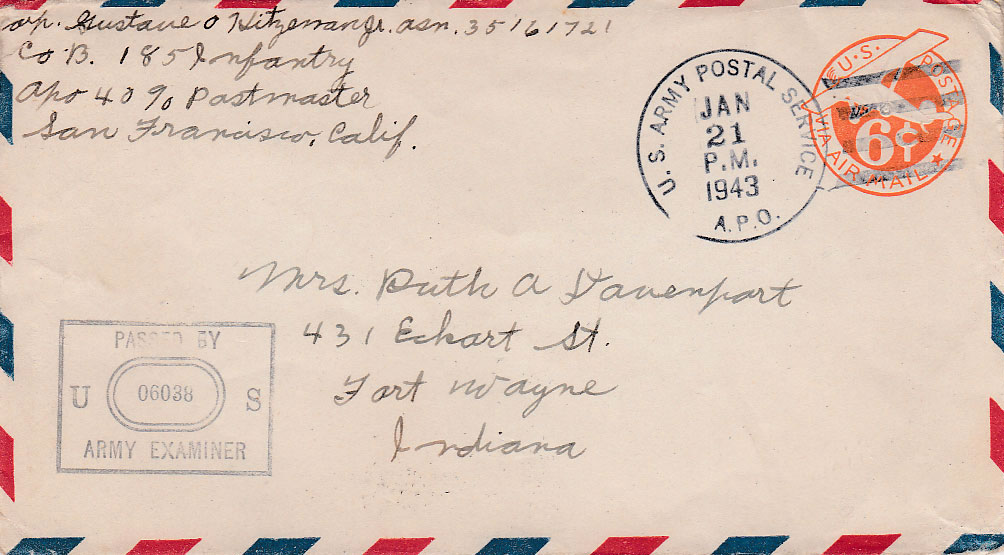 Corp. Gustave O Hitzeman Jr. asn. 35161721
Co B. 185 Infantry
Apo 40 % Postmaster
San Francisco, Calif.
U.S. ARMY POSTAL SERVICE
JAN
21
P.M.
1943
A.P.O.
U.S. POSTAGE
6¢
VIA AIR MAIL
Mrs. Ruth A Davenport
431 Eckart St.
Fort Wayne
Indiana
PASSED BY
U 06038 S
ARMY EXAMINER